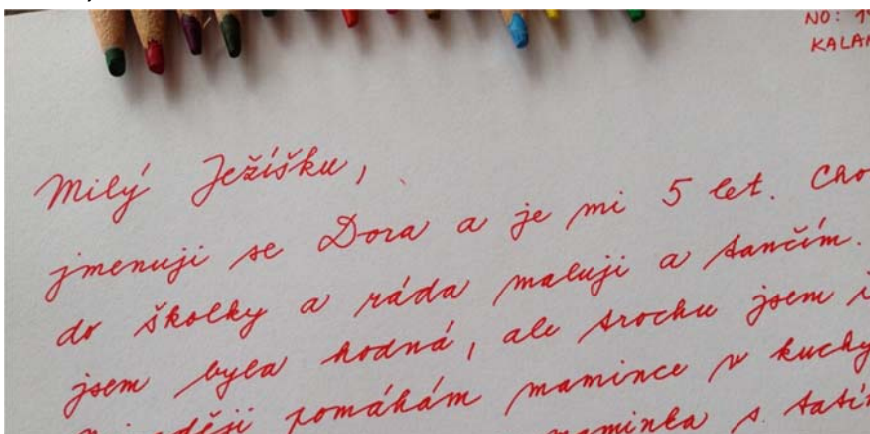 NO:
Milý Ježíšku,
jmenuji se Dora a je mi 5 let.
do školky a ráda maluji a tančím.
jsem byla hodná, ale trochu jsem
pomáhám mamince v
maminka s